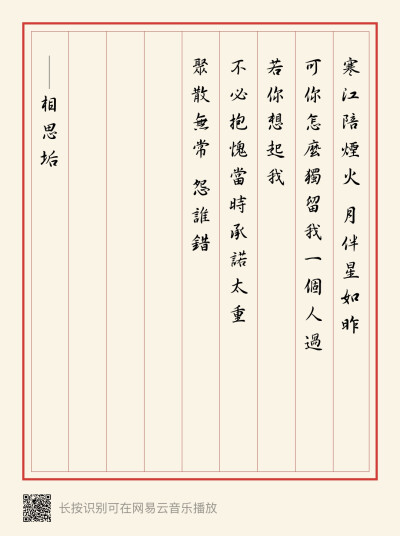 寒江陪煙火 月伴星如昨
可你怎麼獨留我一個人過
若你想起我
不必抱愧當時承諾太重
聚散無常 怨誰錯
——相思垢
长按识别可在网易云音乐播放